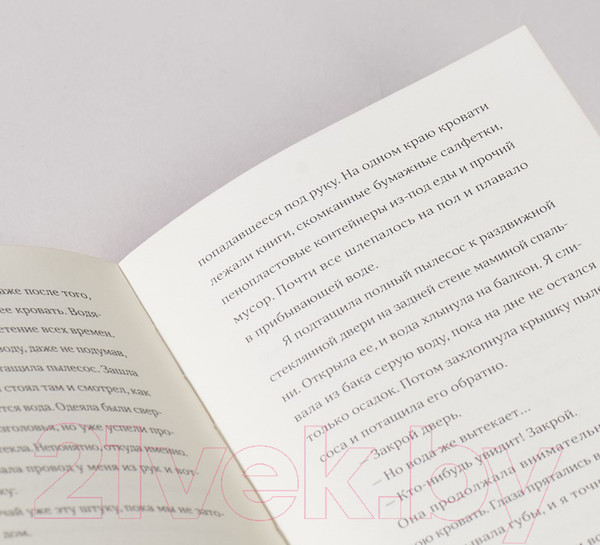 аже после того,
ее кровать. Водя-
етение всех времен.
воду, даже не подумав,
тащила пылесос. Зашла
и стоял там и смотрел, как
ется вода. Одеяла были свер-
зголовья, но уже успели про-
текла. Непонятно, откуда именно.
ала провод у меня из рук и вот-
ку:
чай уже эту штуку, пока мы не зато-
дом.
попадавшееся под руку. На одном краю кровати
лежали книги, скомканные бумажные салфетки,
пенопластовые контейнеры из-под еды и прочий
мусор. Почти все шлепалось на пол и плавало
в прибывающей воде.
Я подтащила полный пылесос к раздвижной
стеклянной двери на задней стене маминой спаль-
ни. Открыла ее, и вода хлынула на балкон. Я сли-
вала из бака серую воду, пока на дне не остался
только осадок. Потом захлопнула крышку пыле-
соса и потащила его обратно.
— Закрой дверь.
— Но вода же вытекает...
— Кто-нибудь увидит! Закрой.
Она продолжала внимательн
ою кровать. Глаза прятались в
вала губы, и я точн
21vek.by